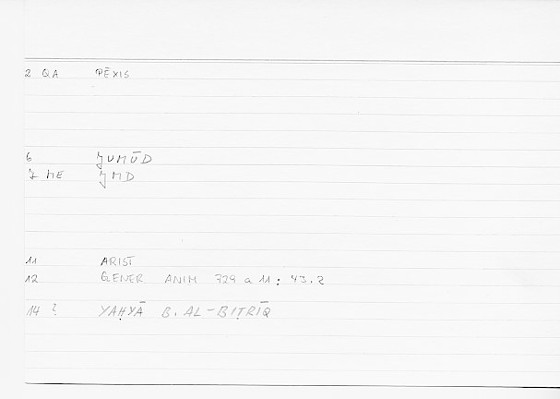 2 QA PĒXIS
6 ǦUMŪD
7 HE ǦMD
11 ARIST
12 GENER ANIM 729 a 11 : 43.2
14 ? YAḤYĀ B. AL-BIṬRĪQ